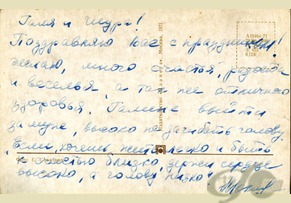 Галя и Шура!
Поздравляю вас с праздником!
Желаю, много счастья, радости
и веселья, а так же отличного
здоровья. Галине выйти
замуж, высоко не задирать голову.
Если хочешь жить и быть
к счастью близко, держи сердце
высоко, а голову низко!